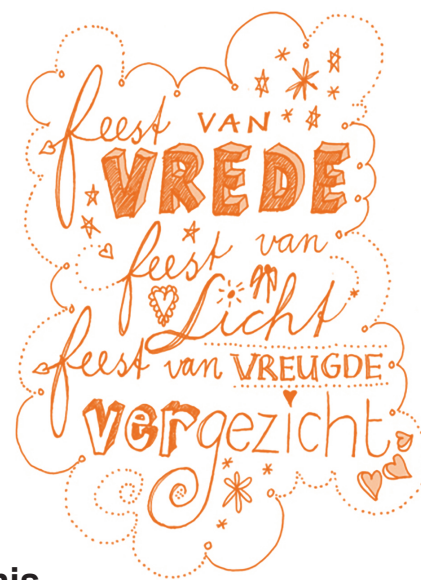 feest VAN
VREDE
feest van
Licht
feest van VREUGDE
vergezicht